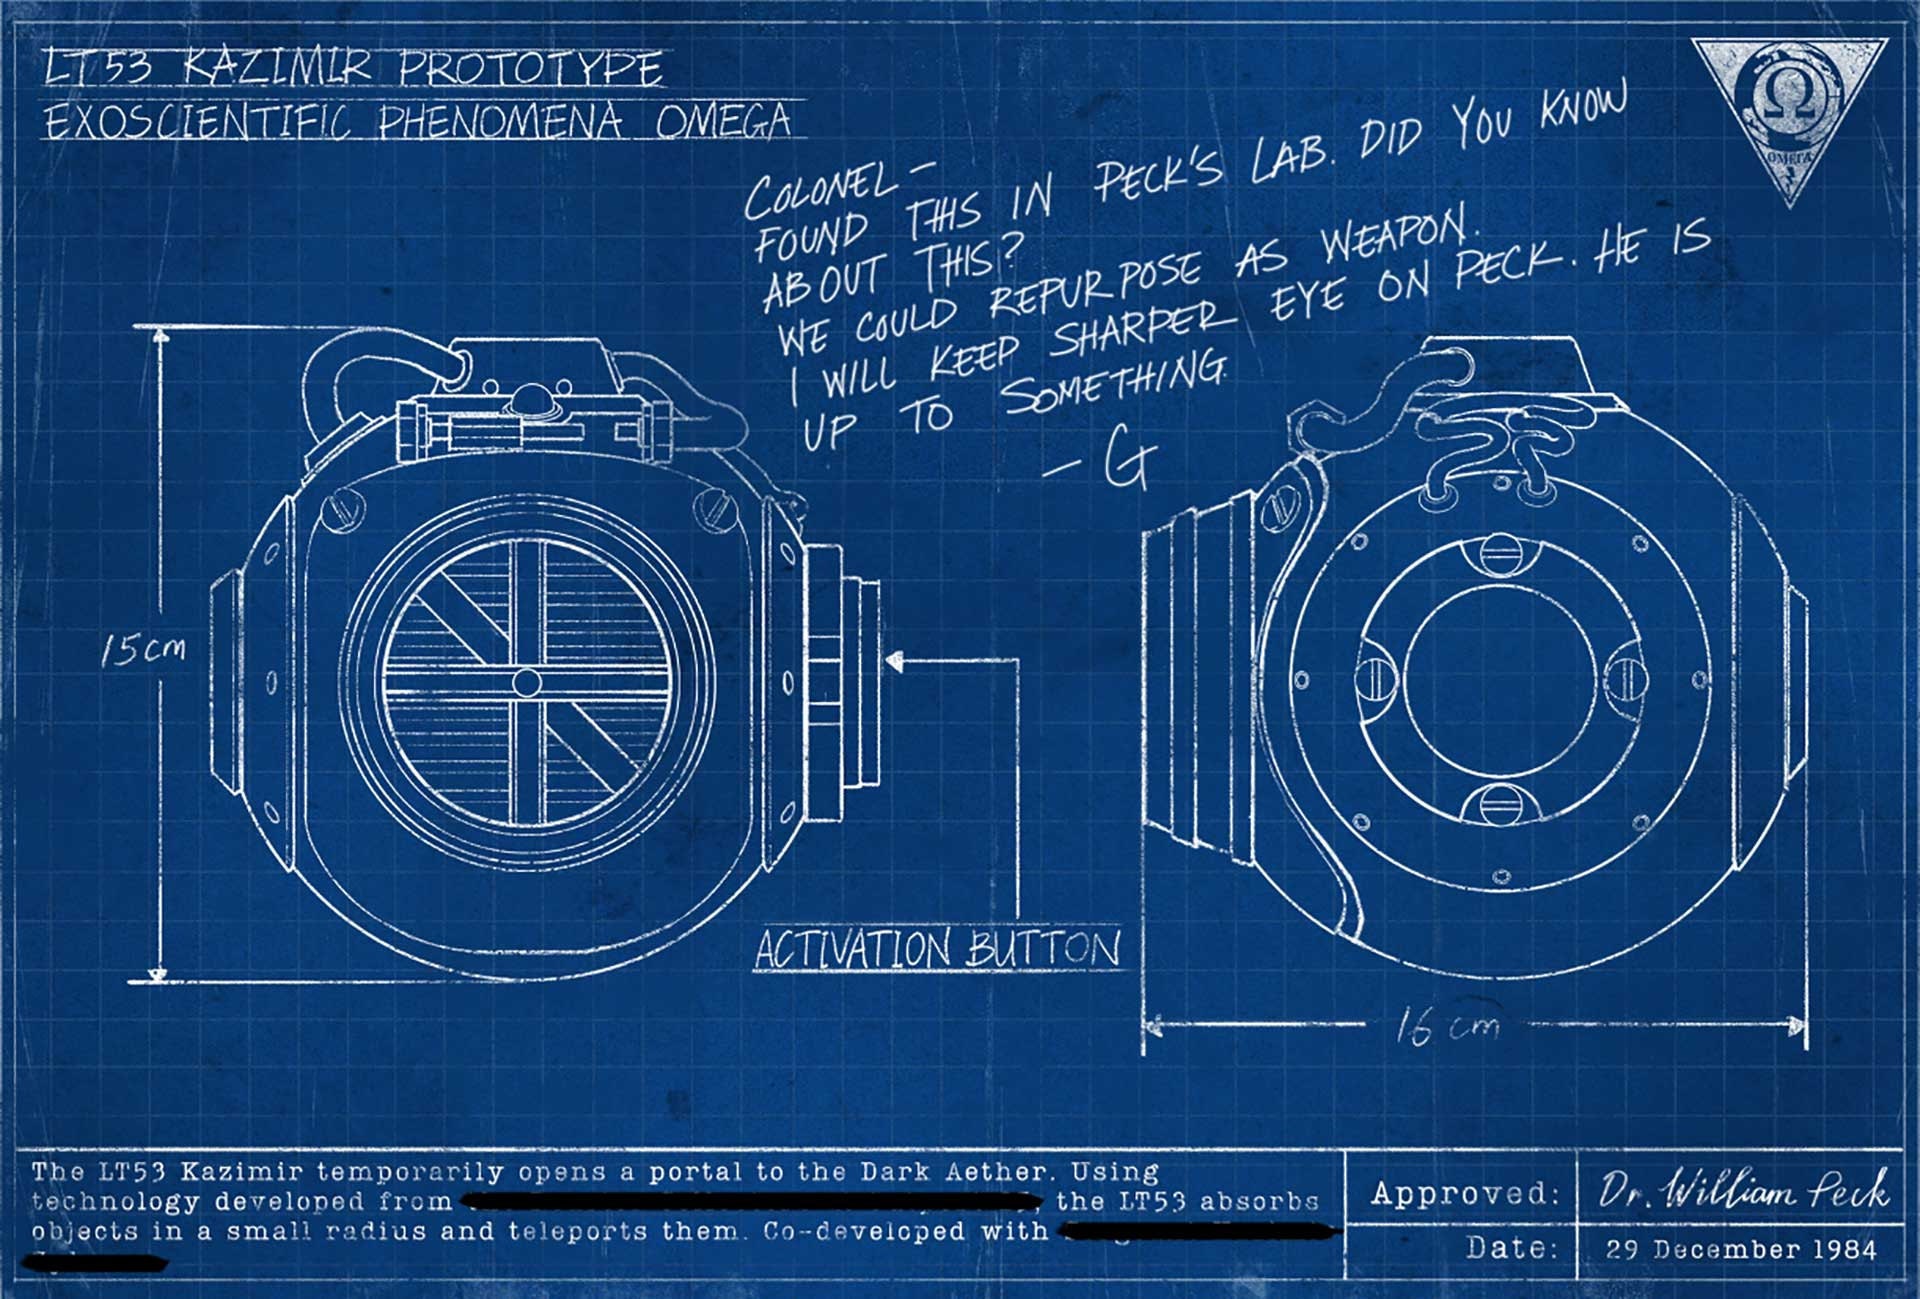 LT53 KAZIMIR PROTOTYPE
EXOSCIENTIFIC PHENOMENA OMEGA
Ω
OMEGA
COLONEL –
FOUND THIS IN PECK'S LAB. DID YOU KNOW
ABOUT THIS?
WE COULD REPURPOSE AS WEAPON.
I WILL KEEP SHARPER EYE ON PECK. HE IS
UP TO SOMETHING.
– G
15cm
ACTIVATION BUTTON
16 cm
The LT53 Kazimir temporarily opens a portal to the Dark Aether. Using
technology developed from , the LT53 absorbs
objects in a small radius and teleports them. Co-developed with
Approved: Dr. William Peck
Date: 29 December 1984